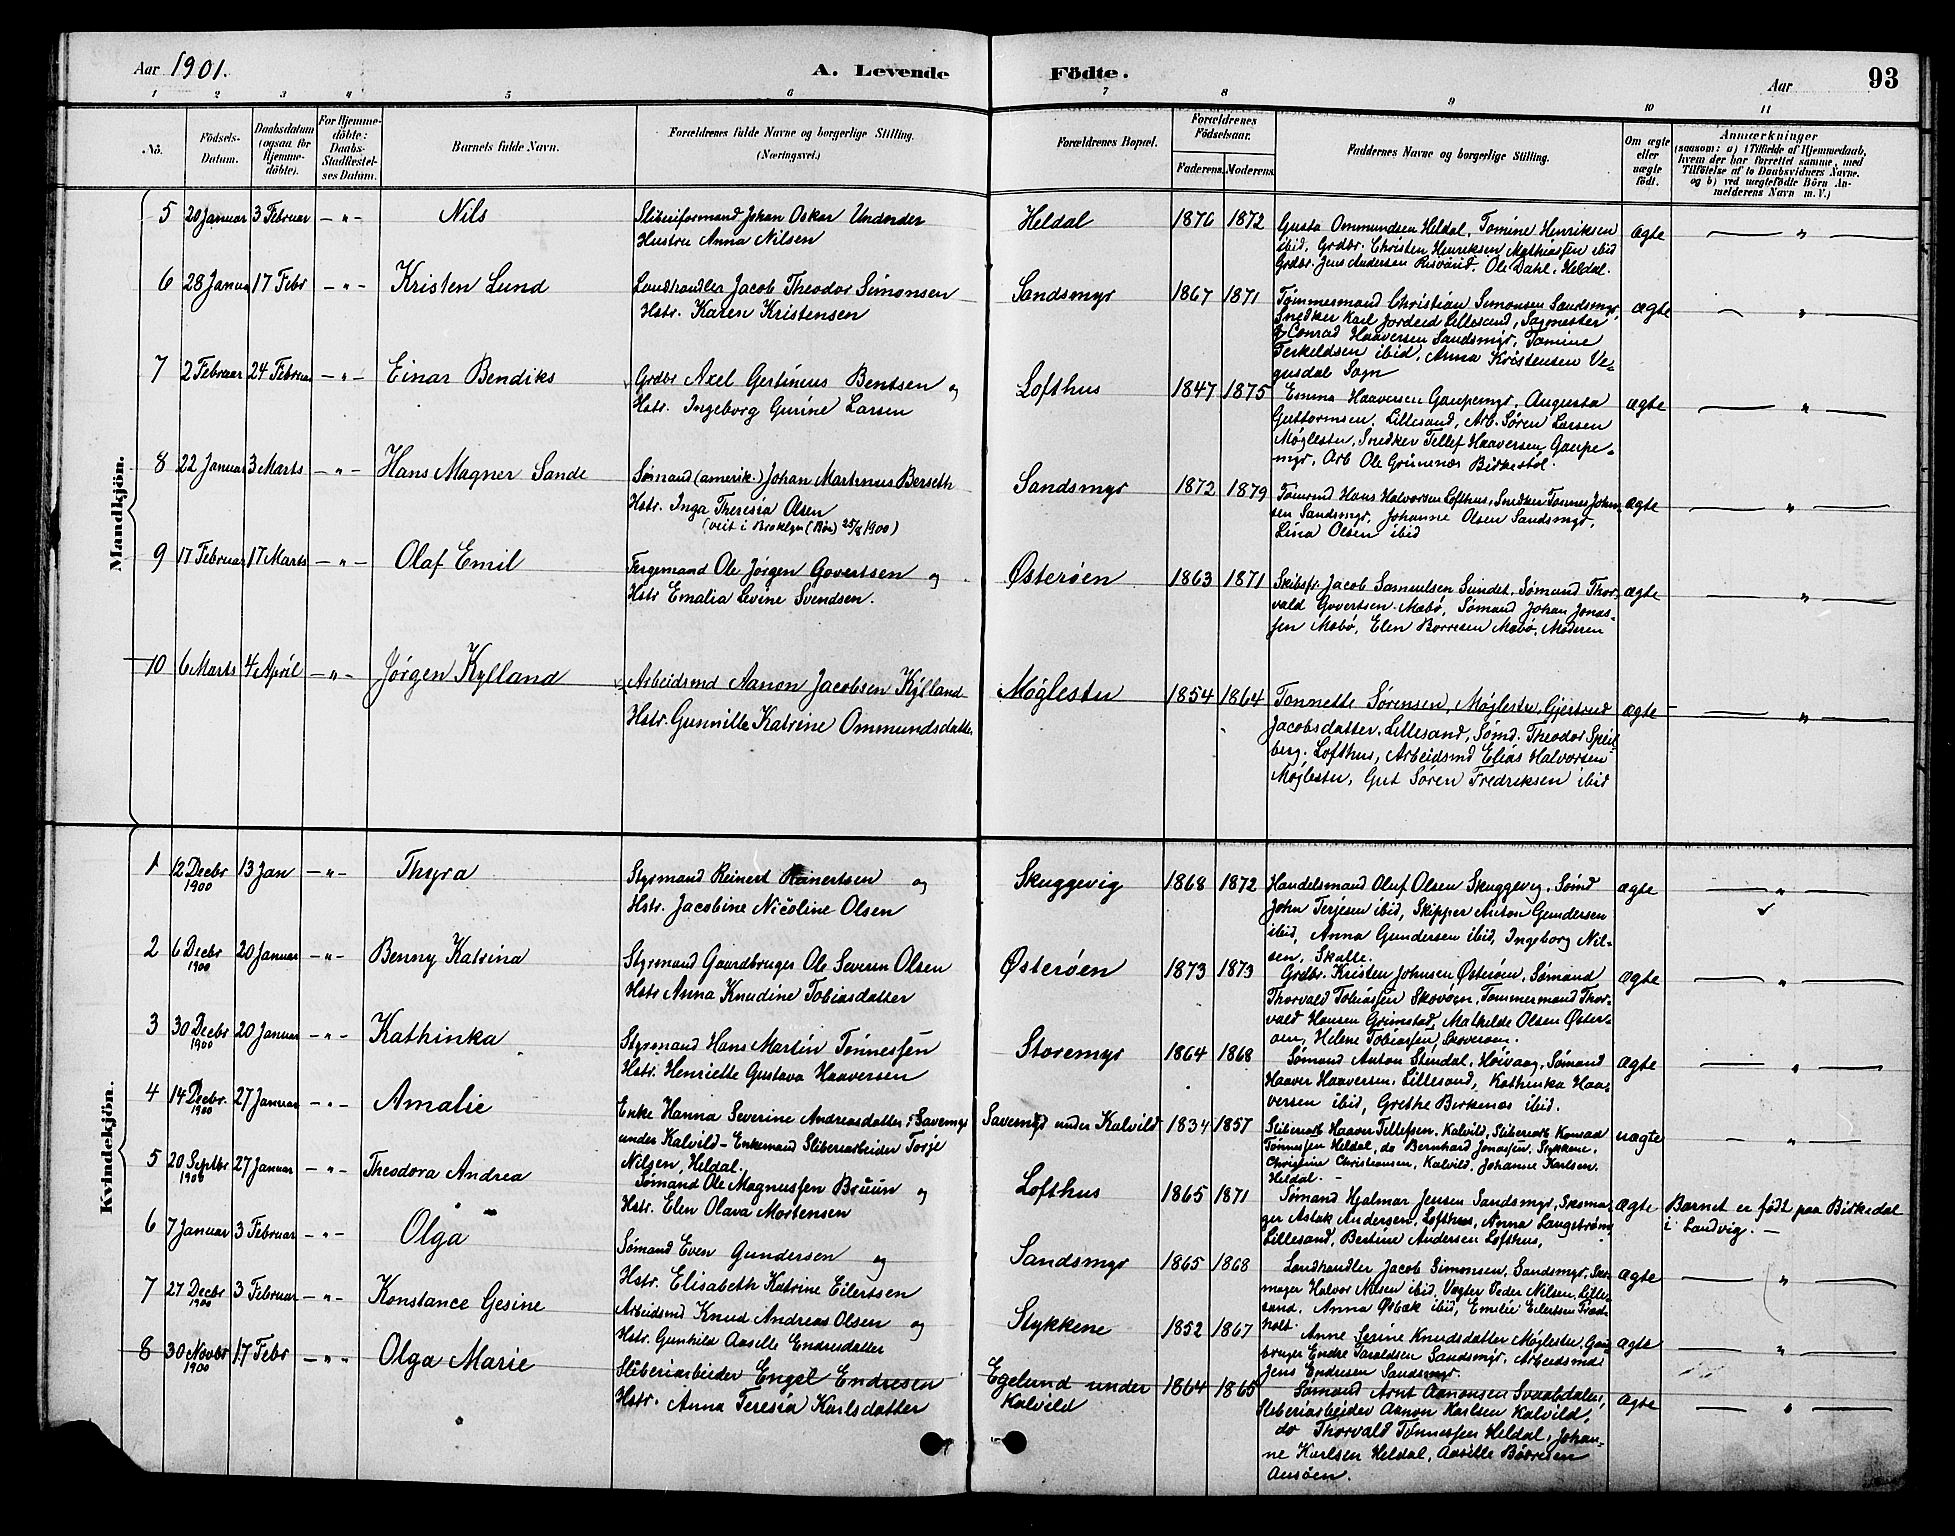 Aar 1901.
A. Levende Födte.
Aar
93
1 2 3 4 5 6 7 8 9 10 11
Nô.
Födsels-
Datum.
Daabsdatum
(ogsaa for
Hjemme-
döbte).
For Hjemme-
döbte:
Daabs-
Stadfæstel-
ses Datum.
Barnets fulde Navn.
Forældrenes fulde Navne og borgerlige Stilling.
(Næringsvei.)
Forældrenes Bopæl.
Forældrenes
Födselsaar.
Faderens. Moderens.
Faddernes Navne og borgerlige Stilling.
Om ægte
eller
uægte
födt.
Anmærkninger
(saasom: a) i Tilfælde af Hjemmedaab,
hvem der har forrettet samme, med
Tilföielse af to Daabsvidners Navne.
og b) ved uægtefödte Börn An-
melderens Navn m. V.)
Mandkjön.
5 20 Januar 3 Februar - " - Nils
Sliberiformand Johan Oskar Undander
Hustru Anna Nilsen
Heldal 1870 1872
Gusta Ommundsen Heldal, Tomine Henriksen
ibid, Grdbr. Christen Henriksen Mathiassen ibid
Grdbr. Jens Andersen Risvand, Ole Dahl, Heldal.
ægte — " —
6 28 Januar 17 Febr - " - Kristen Lund
Landhandler Jacob Theodor Simonsen
Hstr. Karen Kristensen
Sandsmyr 1867 1871
Tømmesmand Christian Simonsen Sandsmyr,
Snedker Karl Jordeid Lillesand, Sagmester
Conrad Haaversen Sandsmyr, Tomine
Terkeldsen ibid, Anna Kristensen Ve-
gusdal Sogn
ægte — " —
7 2 Februar 24 Februar - " - Einar Bendiks
Grdbr Axel Gertinius Bentsen og
Hstr. Ingeborg Gurine Larsen
Lofthus 1847 1875
Emma Haaversen Gaupemyr, Augusta
Guttormsen, Lillesand, Arb. Søren Larsen
Møglestu, Snedker Tellef Haaversen Gaupe-
myr, Arb Ole Grimenæs Birkestøl.
ægte — " —
8 22 Januar 3 Marts - " - Hans Magner Sande
Sømand (amerik.) Johan Martinus Berseth
Hstr. Inga Theresia Olsen
(viet i Broklyn
1900)
Sandsmyr 1872 1879
Tømmd Hans Halvorsen Lofthus, Snedker Tønnes Johan-
sen Sandsmyr, Johanne Olsen Sandsmyr,
Lina Olsen ibid
ægte — " —
9 17 Februar 17 Marts - " - Olaf Emil
Fergemand Ole Jørgen Govertsen og
Hstr Emalia Levine Svendsen.
Østerøen 1863 1871
Skibsfr. Jacob Samuelsen Sundet, Sømand Thor-
vald Govertsen Mobø, Sømand Johan Jonas-
sen Mobø, Elen Borresen Mobø, Moderen
ægte — " —
10 6 Marts 4 April - " - Jørgen Kylland
Arbeidsmd Aanon Jacobsen Kylland
Hstr. Gunnille Katrine Ommundsdatter
Møglestu 1854 1864
Tonnette Sørensen, Møglestu, Gjertrud
Jacobsdatter, Lillesand, Sømd. Theodor Speil-
berg, Lofthus, Arbeidsmd Elias Halvorsen
Møglestu, Gut Søren Fredriksen ibid
ægte — " —
Kvindekjön.
1 12 Decbr 1900 13 Jan - " - Thyra
Styrmand Reinert Reinertsen og
Hstr. Jacobine Nicoline Olsen
Skuggevig 1868 1872
Handelsmand Oluf Olsen Skuggevig, Sømd
John Terjesen ibid, Skipper Anton Gundersen
ibid, Anna Gundersen ibid, Ingeborg Nil-
sen, Skalle.
ægte — " —
2 6 Decbr 1900 20 Januar - " - Benny Katrina
Styrmand Gaardbruger Ole Severin Olsen
Hstr Anna Knudine Tobiasdatter
Østerøen 1873 1873
Grdbr. Kristen Johnsen Østerøen, Sømand
Thorvald Tobiassen Skovøen, Tømmermand Thor-
vald Hansen Grimstad, Mathilde Olsen Øster-
øen, Helene Tobiassen, Skoverøen.
ægte — " —
3 30 Decbr 1900 20 Januar - " - Kathinka
Styrmand Hans Martin Tønnessen
Hstr. Henriette Gustava Haaversen
Storemyr 1864 1868
Sømand Anton Stendal, Høivaag, Sømand
Haaver Haaversen, Lillesand, Kathinka Haa-
versen ibid, Grethe Birkenæs ibid.
ægte — " —
4 14 Decbr. 1900 27 Januar - " - Amalie
Enke Hanna Severine Andreasdatter, Savemyr
under Kalvild - Enkemand Sliberiarbeider Torje
Nilsen, Heldal.
Savemyr under Kalvild 1834 1857
Sliberiarb Haaver Tellefsen, Kalvild, Sliberiarb Konrad
Tønnessen Heldal, do Bernhard Jonassen, Stykkene,
Christine Christiansen, Kalvild, Johanne Karlsen,
Heldal. -
uægte — " —
5 20 Septbr 1900 27 Januar - " - Theodora Andrea
Sømand Ole Magnussen Bruun og
Hstr. Elen Olava Mortensen
Lofthus 1865 1871
Sømand Hjalmar Jensen Sandsmyr, Skoma-
ger Aslak Andersen, Lofthus, Anna Langstrøm,
Lillesand, Bertine Andersen Lofthus,
ægte Barnet er født paa Birkedal
i Landvig. -
6 7 Januar 3 Februar - " - Olga
Sømand Even Gundersen og
Hstr. Elisabeth Katrine Eilertsen
Sandsmyr 1865 1868
Landhandler Jacob Simonsen, Sandsmyr, Sko-
mager Halvor Nilsen ibid, Vægter Peder Nilsen, Lille-
sand, Anna Osbak ibid, Emelie Eilertsen Træd-
holt.
ægte — " —
7 27 Decbr 1900 3 Februar - " - Konstance Gesine
Arbeidsmd Knud Andreas Olsen og
Hstr. Gunhild Aaselle Endresdatter
Stykkene 1852 1867
Anne Serine Knudsdatter Møglestu, Gaard-
bruger Endre Taraldsen Sandsmyr, Arbeidsmd
Jens Endresen Sandsmyr.
ægte — " —
8 30 Novbr 1900 17 Febr - " - Olga Marie
Sliberiarbeider Engel Endresen
Hstr. Anna Teresia Karlsdatter
Egelund under
Kalvild
1864 1865
Sømand Arnt Aanonsen Svaabdalen,
Sliberiarbeider Aanon Karlsen Kalvild,
do Thorvald Tønnessen Heldal, Johan-
ne Karlsen Heldal, Aasille Børresen
Aasøen.
ægte — " —